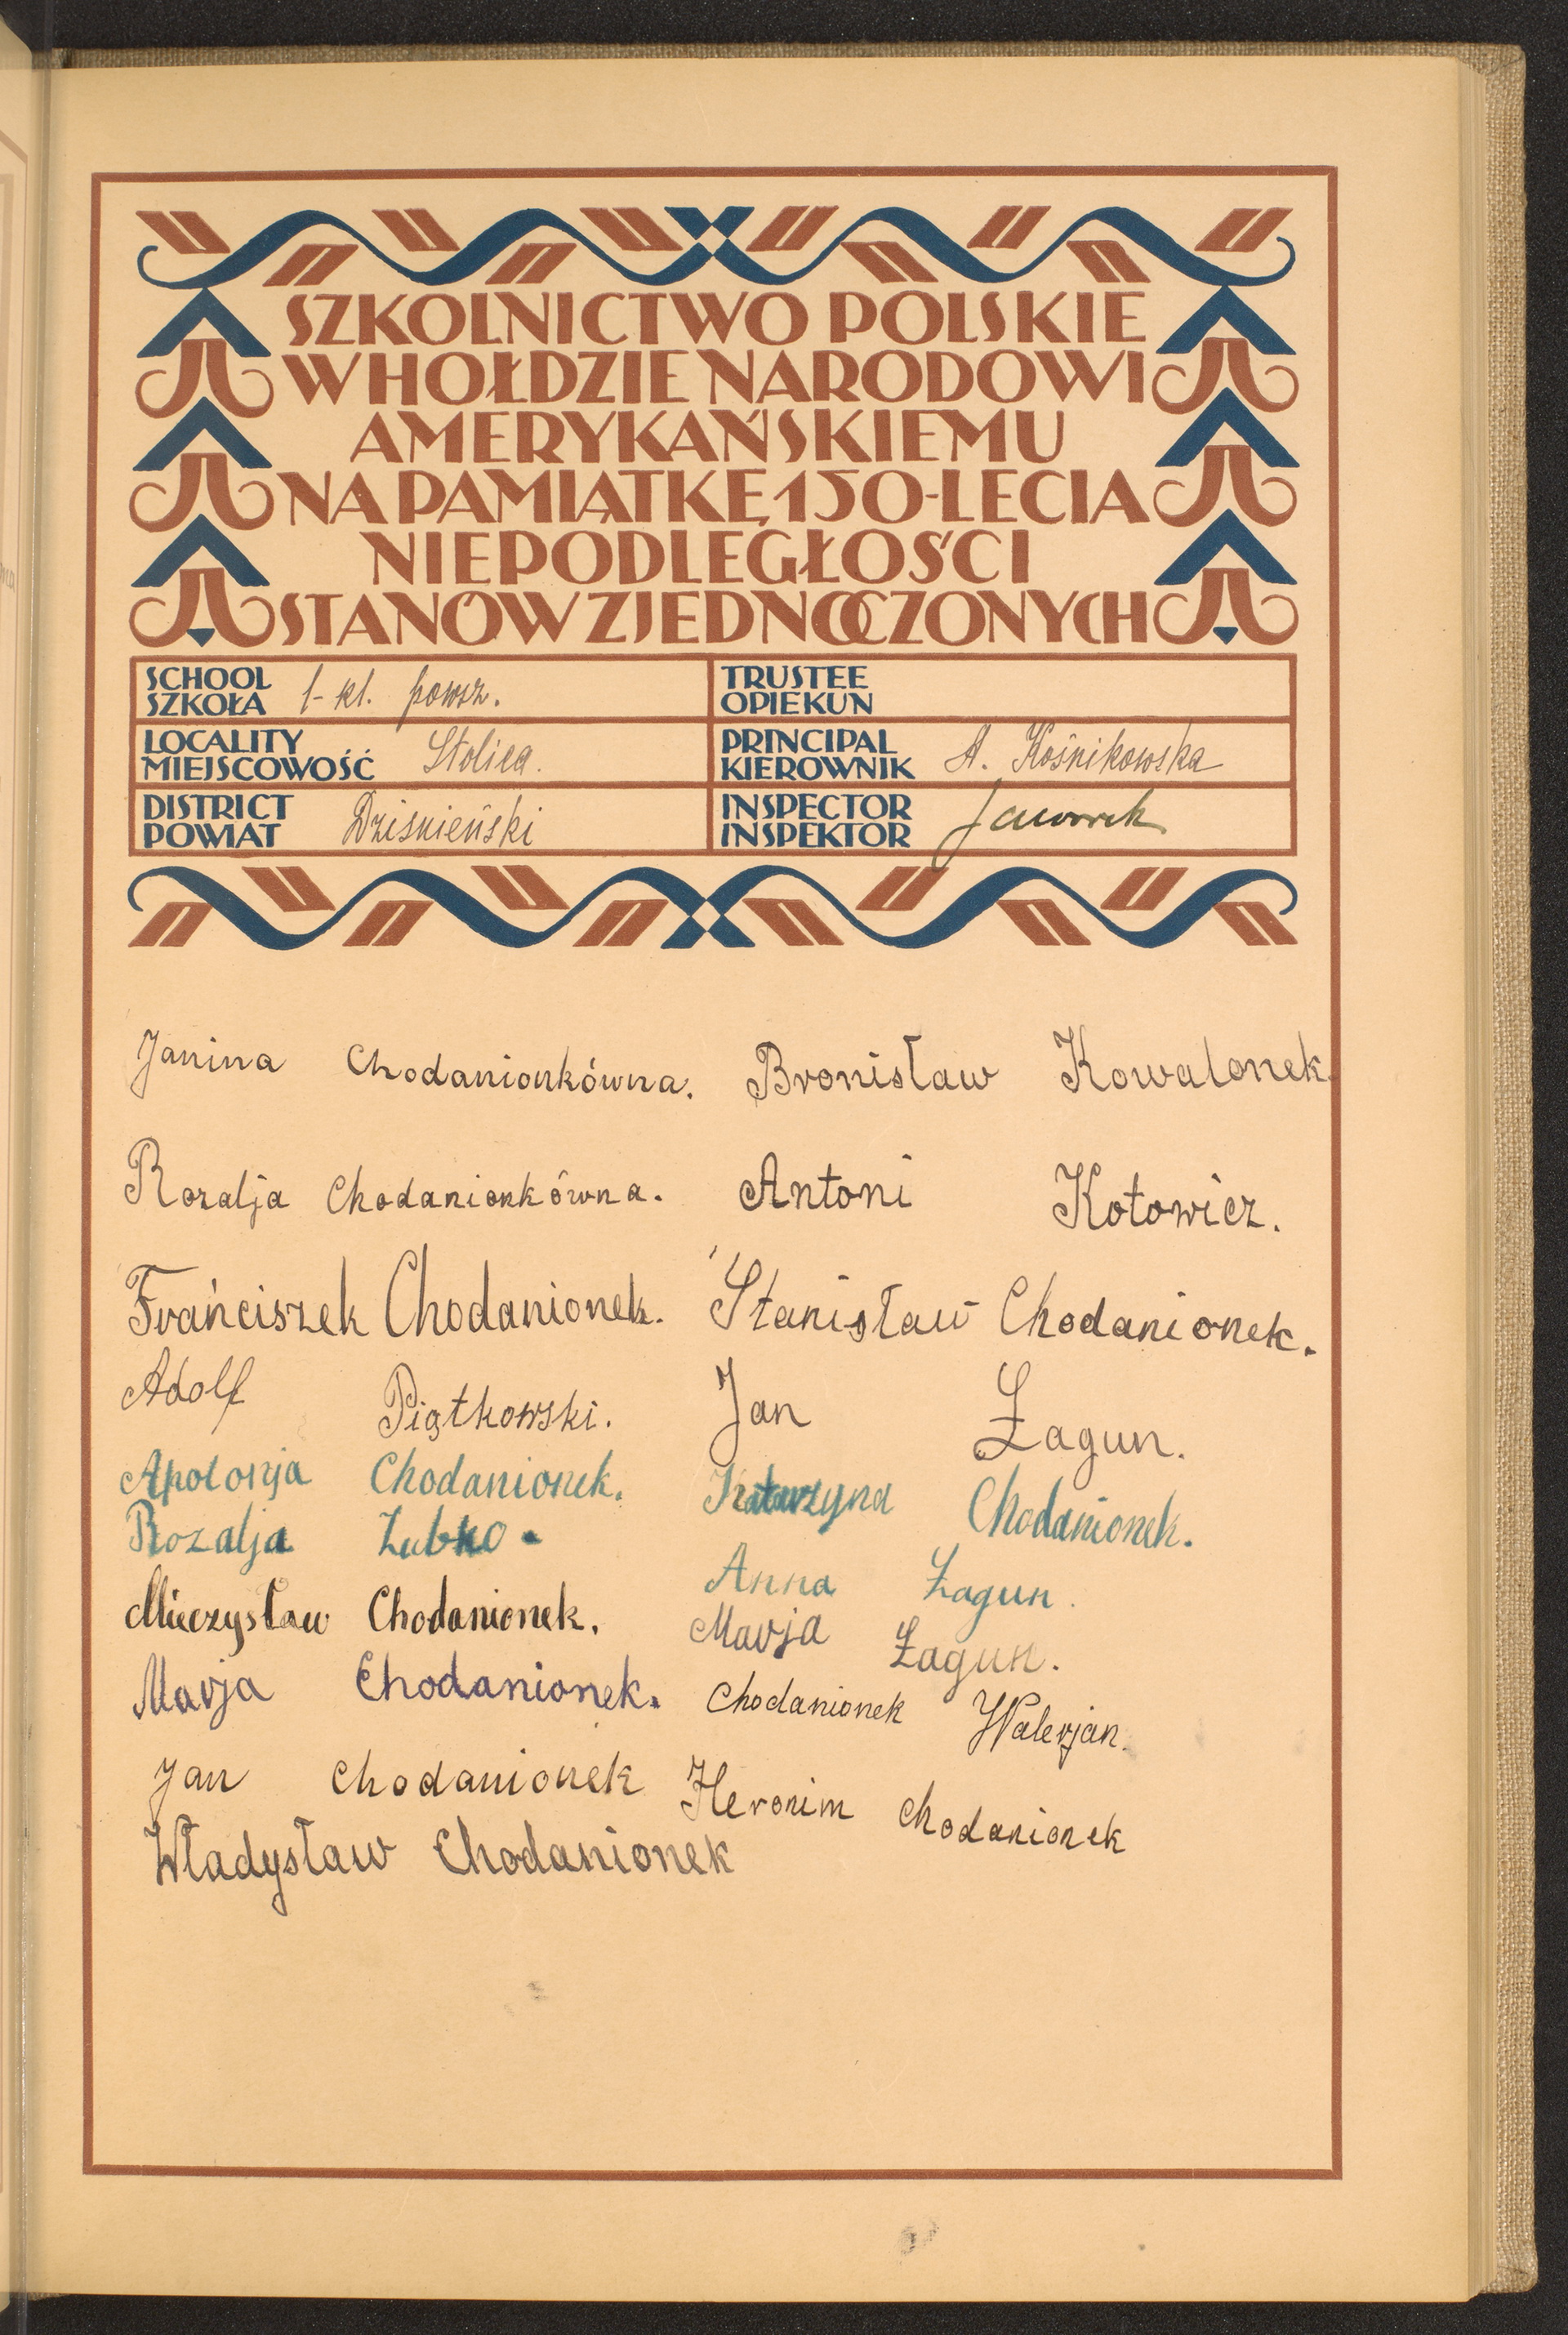 SZKOLNICTWO POLSKIE
W HOŁDZIE NARODOWI
AMERYKAŃSKIEMU
NA PAMIĄTKĘ 150-LECIA
NIEPODLEGŁOŚCI
STANÓW ZJEDNOCZONYCH
SCHOOL
SZKOŁA 1-kl. powsz.
TRUSTEE
OPIEKUN
LOCALITY
MIEJSCOWOŚĆ Stolica.
PRINCIPAL
KIEROWNIK A. Kośnikowska
DISTRICT
POWIAT Dziśnieński
INSPECTOR
INSPEKTOR Jaworek
Janina Chodanionkówna. Bronisław Kowalonek.
Rozalja Chodanionkówna. Antoni Kotowicz.
Frańciszek Chodanionek. Stanisław Chodanionek.
Adolf Piątkowski. Jan Łagun.
Apolonja Chodanionek. Katarzyna Chodanionek.
Rozalja Zubko. Anna Łagun.
Mieczysław Chodanionek. Marja Łagun.
Marja Chodanionek. Chodanionek Walerjan.
Jan Chodanionek Heronim Chodanionek
Władysław Chodanionek